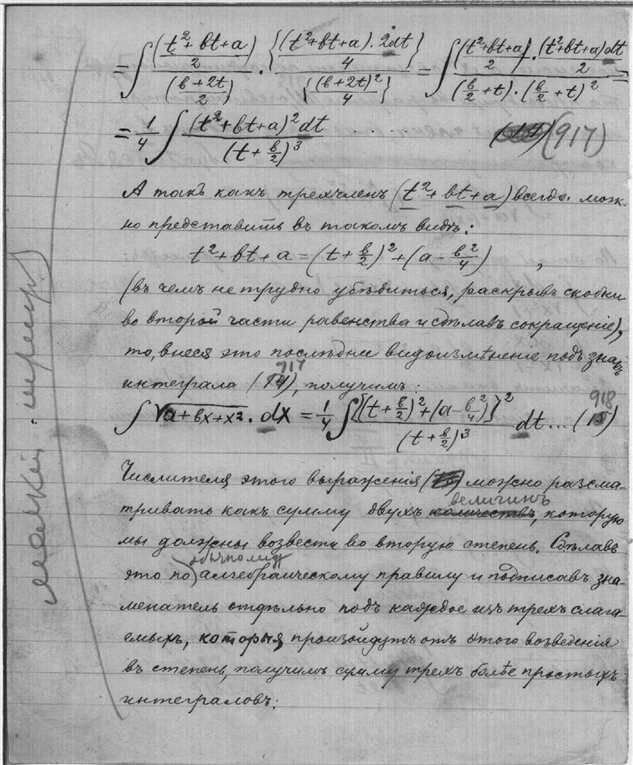 = ∫ (t²+bt+a)/2 / (b+2t)/2 · {(t²+bt+a).2dt}/4 / {(b+2t)²/4} = ∫ (t²+bt+a)/2 · (t²+bt+a)dt/2 / (b/2+t).(b/2+t)² =
= 1/4 ∫ (t²+bt+a)²dt / (t+b/2)³ (917)
А такъ какъ трехчленъ (t²+bt+a) всегда мож-
но представить въ такомъ видѣ:
t²+bt+a = (t+b/2)²+(a-b²/4),
(въ чемъ не трудно убѣдиться, раскрывъ скобки
во второй части равенства и сдѣлавъ сокращеніе),
то, внеся это послѣднее видоизмѣненіе подъ знакъ
917
интеграла (14), получимъ:
∫ √a+bx+x² . dx = 1/4 ∫ {(t+b/2)²+(a-b²/4)}² / (t+b/2)³ dt... (15)
918
Числителя этого выраженія можно разсма-
величинъ
тривать какъ сумму двухъ количествъ, которую
мы должны возвести во вторую степень. Сдѣлавъ
обычному
это по алгебраическому правилу и подписавъ зна-
менатель отдѣльно подъ каждое изъ трехъ слага-
емыхъ, которыя произойдутъ отъ этого возведенія
въ степень, получимъ сумму трехъ болѣе простыхъ
интеграловъ:
мелкій шрифт.